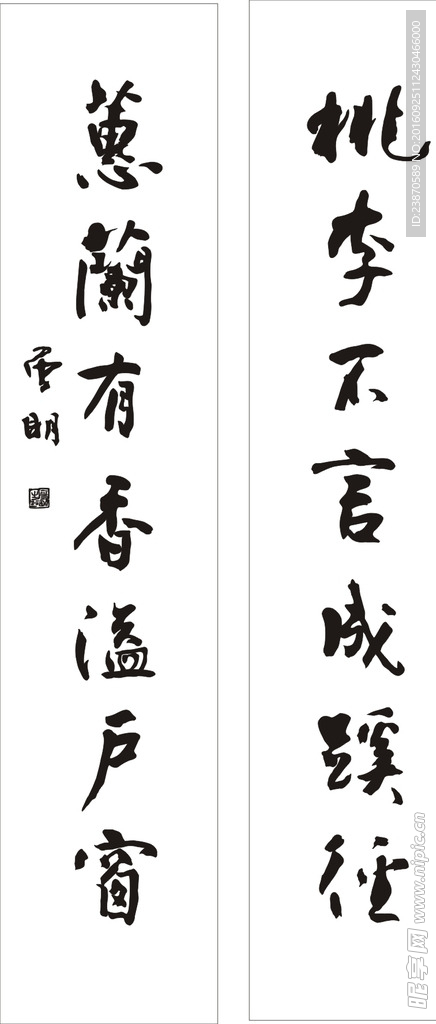 桃李不言成蹊径
蕙蘭有香溢戶窗
雲明
ID:23870589 NO:20160925112430466000
昵享网 www.nipic.cn